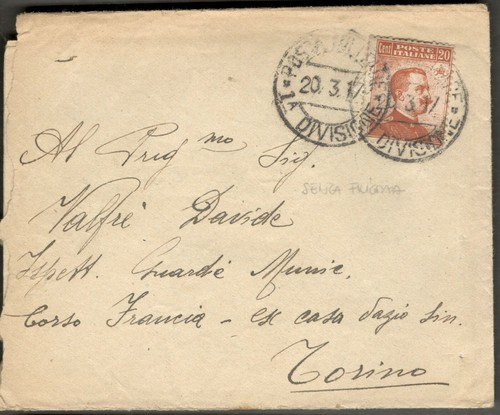 Cent POSTE ITALIANE 20
POSTA MILITARE
20.3.17
1A DIVISIONE
3.17
DIVISIONE
Al Preg mo Sig.
SENZA FILIGRANA
Valfré Davide
Ispett. Guardie Munic.
Corso Francia - ex casa dazio sin.
Torino